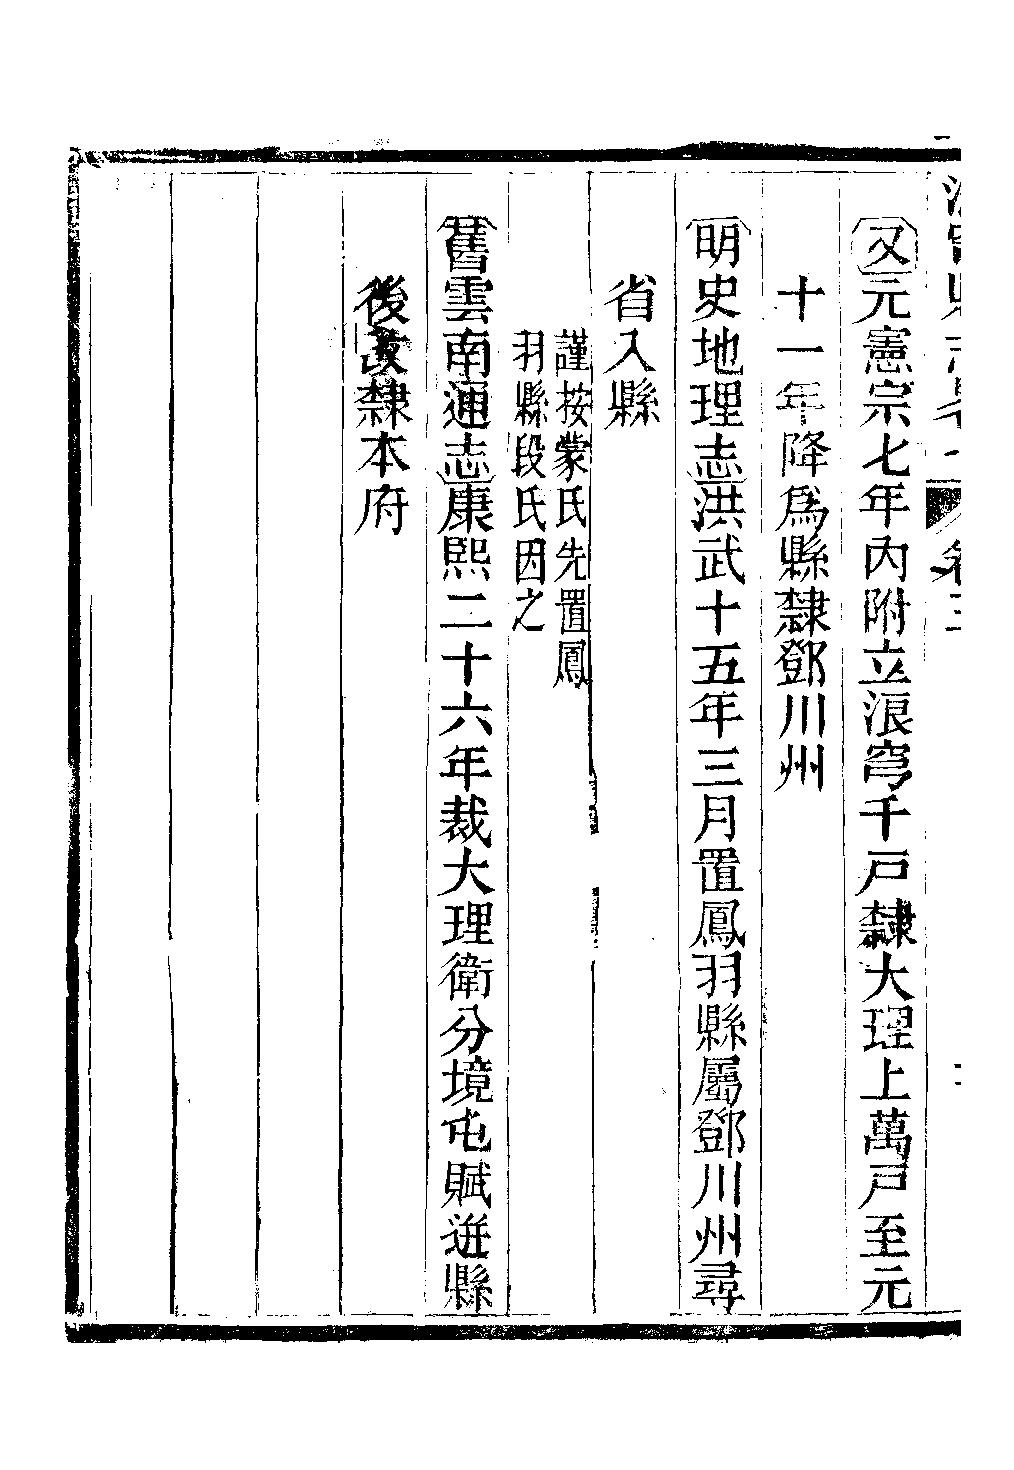 又元憲宗七年內附立浪穹千戸隸大理上萬戸至元
十一年降爲縣隸鄧川州
明史地理志洪武十五年三月置鳳羽縣屬鄧川州尋
省入縣
謹按蒙氏先置鳳
羽縣段氏因之
舊雲南通志康熙二十六年裁大理衛分境屯賦逬縣
後改隸本府